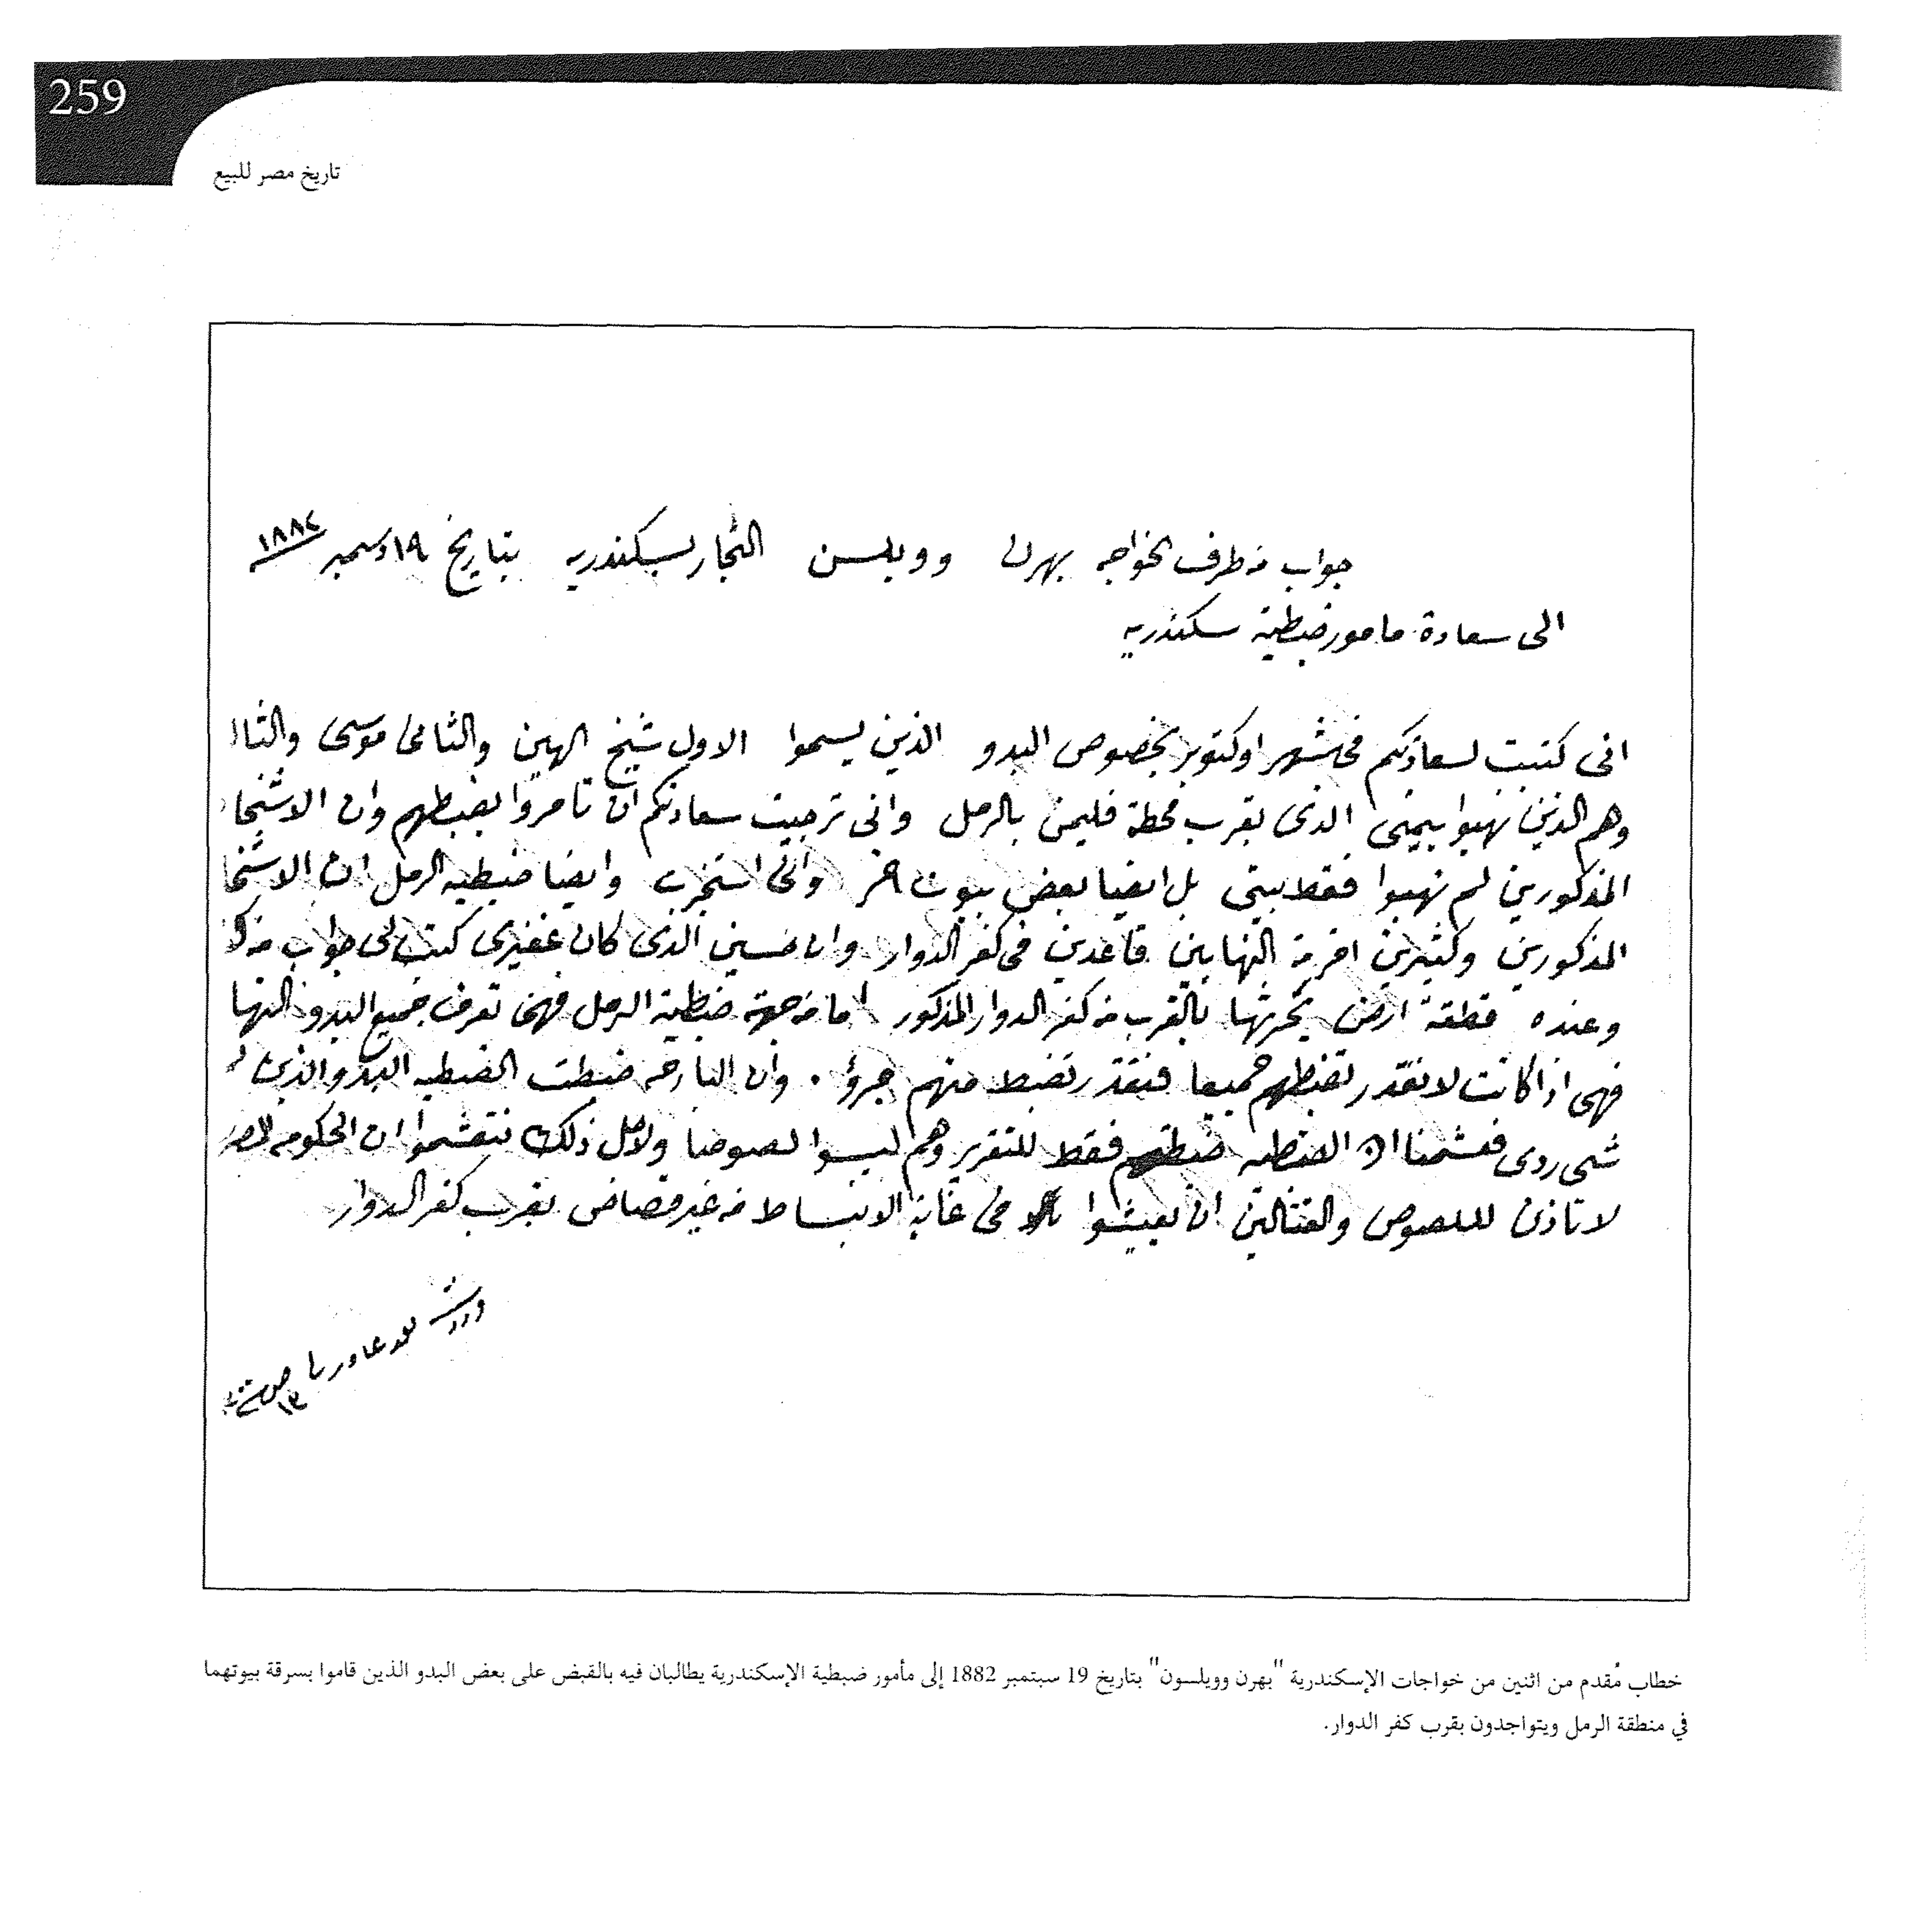 259
تاريخ مصر للبيع
جواب من طرف الخواجه بهرن وويلسن التجار بسكندريه بتاريخ ١٩ دسمبر ١٨٨٢
الى سعادة مامور ضبطية سكندريه
انى كتبت لسعادتكم فى شهر اوكتوبر بخصوص البدو الذين يسموا الاول شيخ الهين والثانى موسى والثا
وهم الذين نهبوا بيتى الذى بقرب محطة فليمن بالرمل وانى ترجيت سعادتكم ان تامروا بضبطهم وان الاشخا
المذكورين لم نهبوا فقط بيتى بل ايضا بعض بيوت اخر وانى استخبرت وايضا ضبطيه الرمل ان الاشخا
المذكورين وكثيرين اخر من النهابين قاعدين فى كفر الدوار وان حسين الذى كان غفيرى كتب لى جواب من
وعنده قطقة ارض يحرثها بالقرب من كفر الدوار المذكور اما من جهة ضبطية الرمل فهى تعرف جميع البدو النها
فهى اذا كانت لا تقدر تضبطهم جميعا فتقدر تضبط منهم جرؤ . وان البارحه ضبطت الضبطيه البدو الذين
شى ردى فعشمنا ان الضبطيه ضبطتهم فقط للتقرير وهم ليسوا لصوصا ولاجل ذلك نتعشموا ان الحكومه المصر
لا تاذن لللصوص والقتالين ان يعيشوا فى غاية الانبساط من غير قصاص بقرب كفر الدوار
خطاب مُقدم من اثنين من خواجات الإسكندرية "بهرن وويلسون" بتاريخ 19 سبتمبر 1882 إلى مأمور ضبطية الإسكندرية يطالبان فيه بالقبض على بعض البدو الذين قاموا بسرقة بيوتهما
في منطقة الرمل ويتواجدون بقرب كفر الدوار.